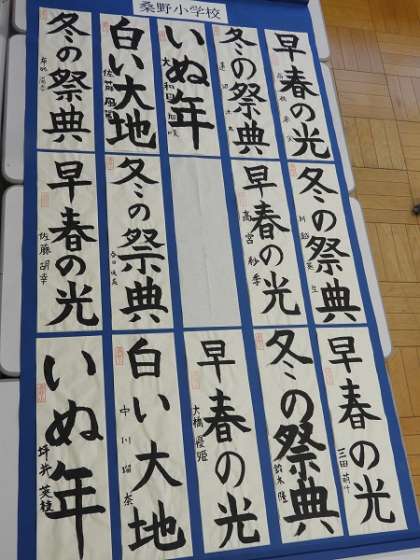 桑野小学校
早春の光
冬の祭典
いぬ年
白い大地
冬の祭典
冬の祭典
早春の光
高宮 紗季
冬の祭典
早春の光
佐藤 胡幸
早春の光
三田 萌叶
冬の祭典
鈴木 隆
早春の光
大橋 優姫
白い大地
中川 瑠奈
いぬ年